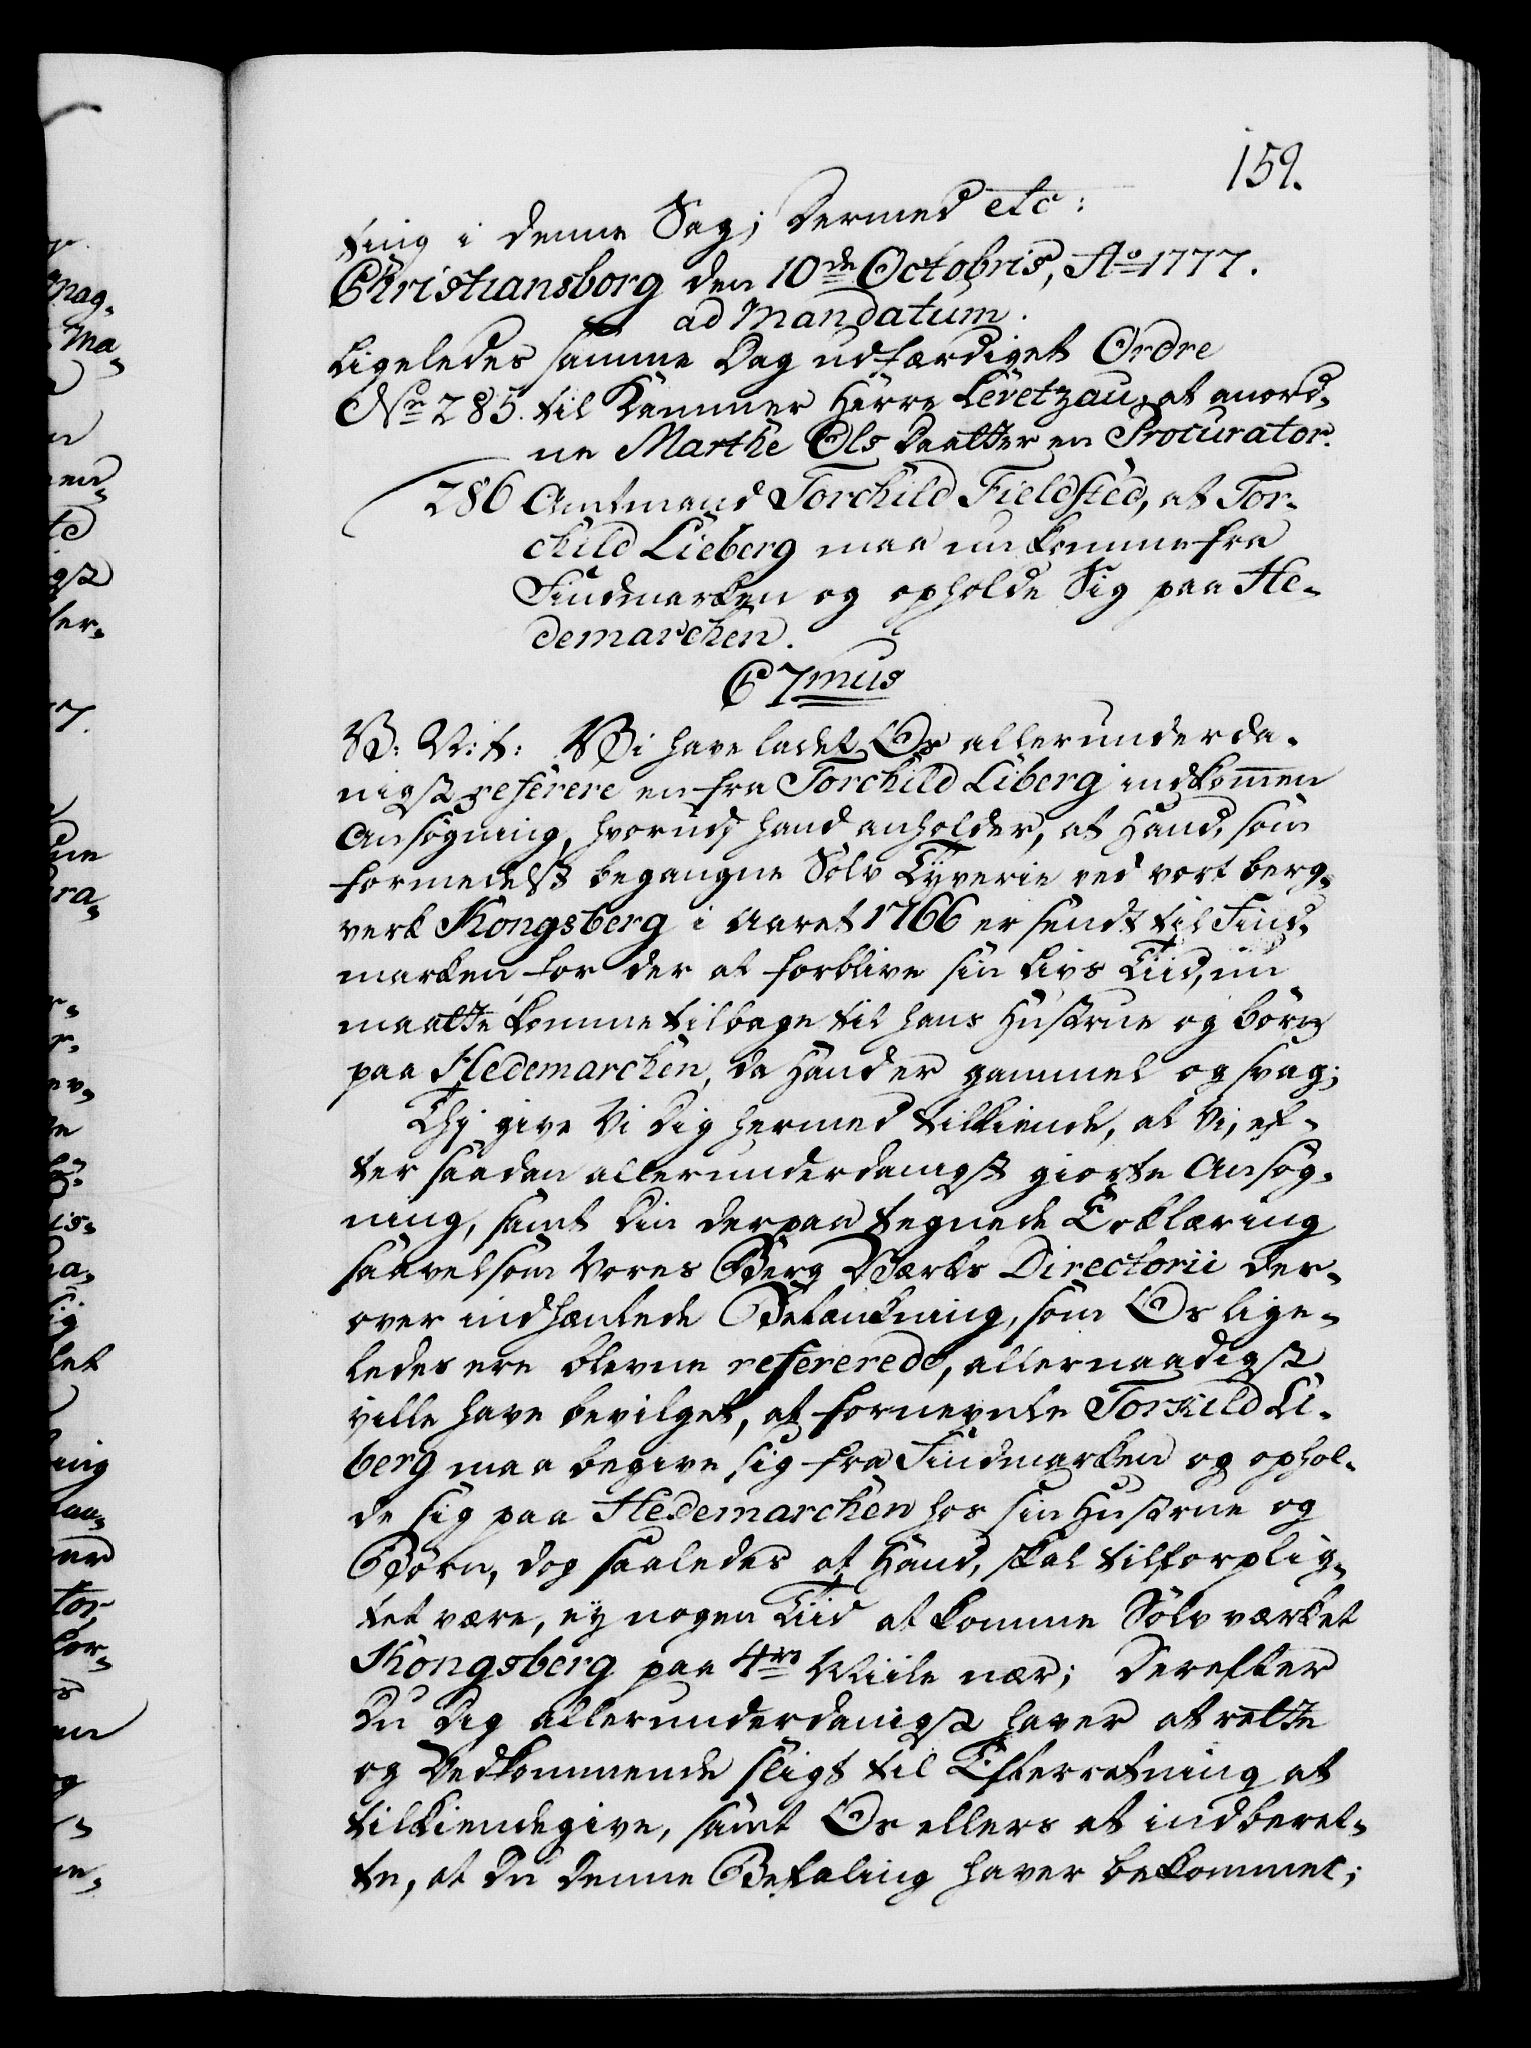 159.
ting i denne Sag; Dermed etc:
Christiansborg den 10de Octobris, Ao 1777.
ad Mandatum.
Ligeledes samme Dag udfærdiget Ordre
No 285. til Kammer Herre Levetzau, at anord-
ne Marthe Ols Daatter en Procurator.
286 Amtmand Torchild Fieldsted, at Tor-
child Lieberg maa nu komme fra
Findmarken og opholde Sig paa He-
demarchen.
C 7mus
V: V: t: Vi have ladet Os allerunderda-
nigst referere en fra Torchild Liberg indkommen
Ansøgning, hvorudj hand anholder, at Hand, som
formedelst begangne Sølv Tyverie ved vort berg-
verk Kongsberg i Aaret 1766 er sendt til Find-
marken for der at forblive sin Livs Tiid, nu
maatte komme tilbage til hans Hustrue og børn
paa Hedemarchen, da Hand er gammel og svag;
Thj give Vi Dig hermed tilkiende, at Vi, ef-
ter saadan allerunderdanigst giorte Ansøg-
ning, samt Din derpaa tegnede Erklæring
saavelsom Vores Berg Værks Directorii der-
over indhæntede Betænkning, som Os lige-
ledes ere blevne refererede, allernaadigst
ville have bevilget, at fornevnte Torkild Li-
berg maa begive sig fra Findmarken og ophol-
de sig paa Hedemarchen hos sin Hustrue og
Børn, dog saaledes at Hand, skal tilforplig-
tet være, ey nogen Tiid at komme Sølv værket
Kongsberg paa 4re Miile nær; Derefter
Du Dig allerunderdanigst haver at rette
og Vedkommende sligt til Efterretning at
tilkiendegive, samt Os ellers at indberet-
te, at Du denne Befaling haver bekommet;